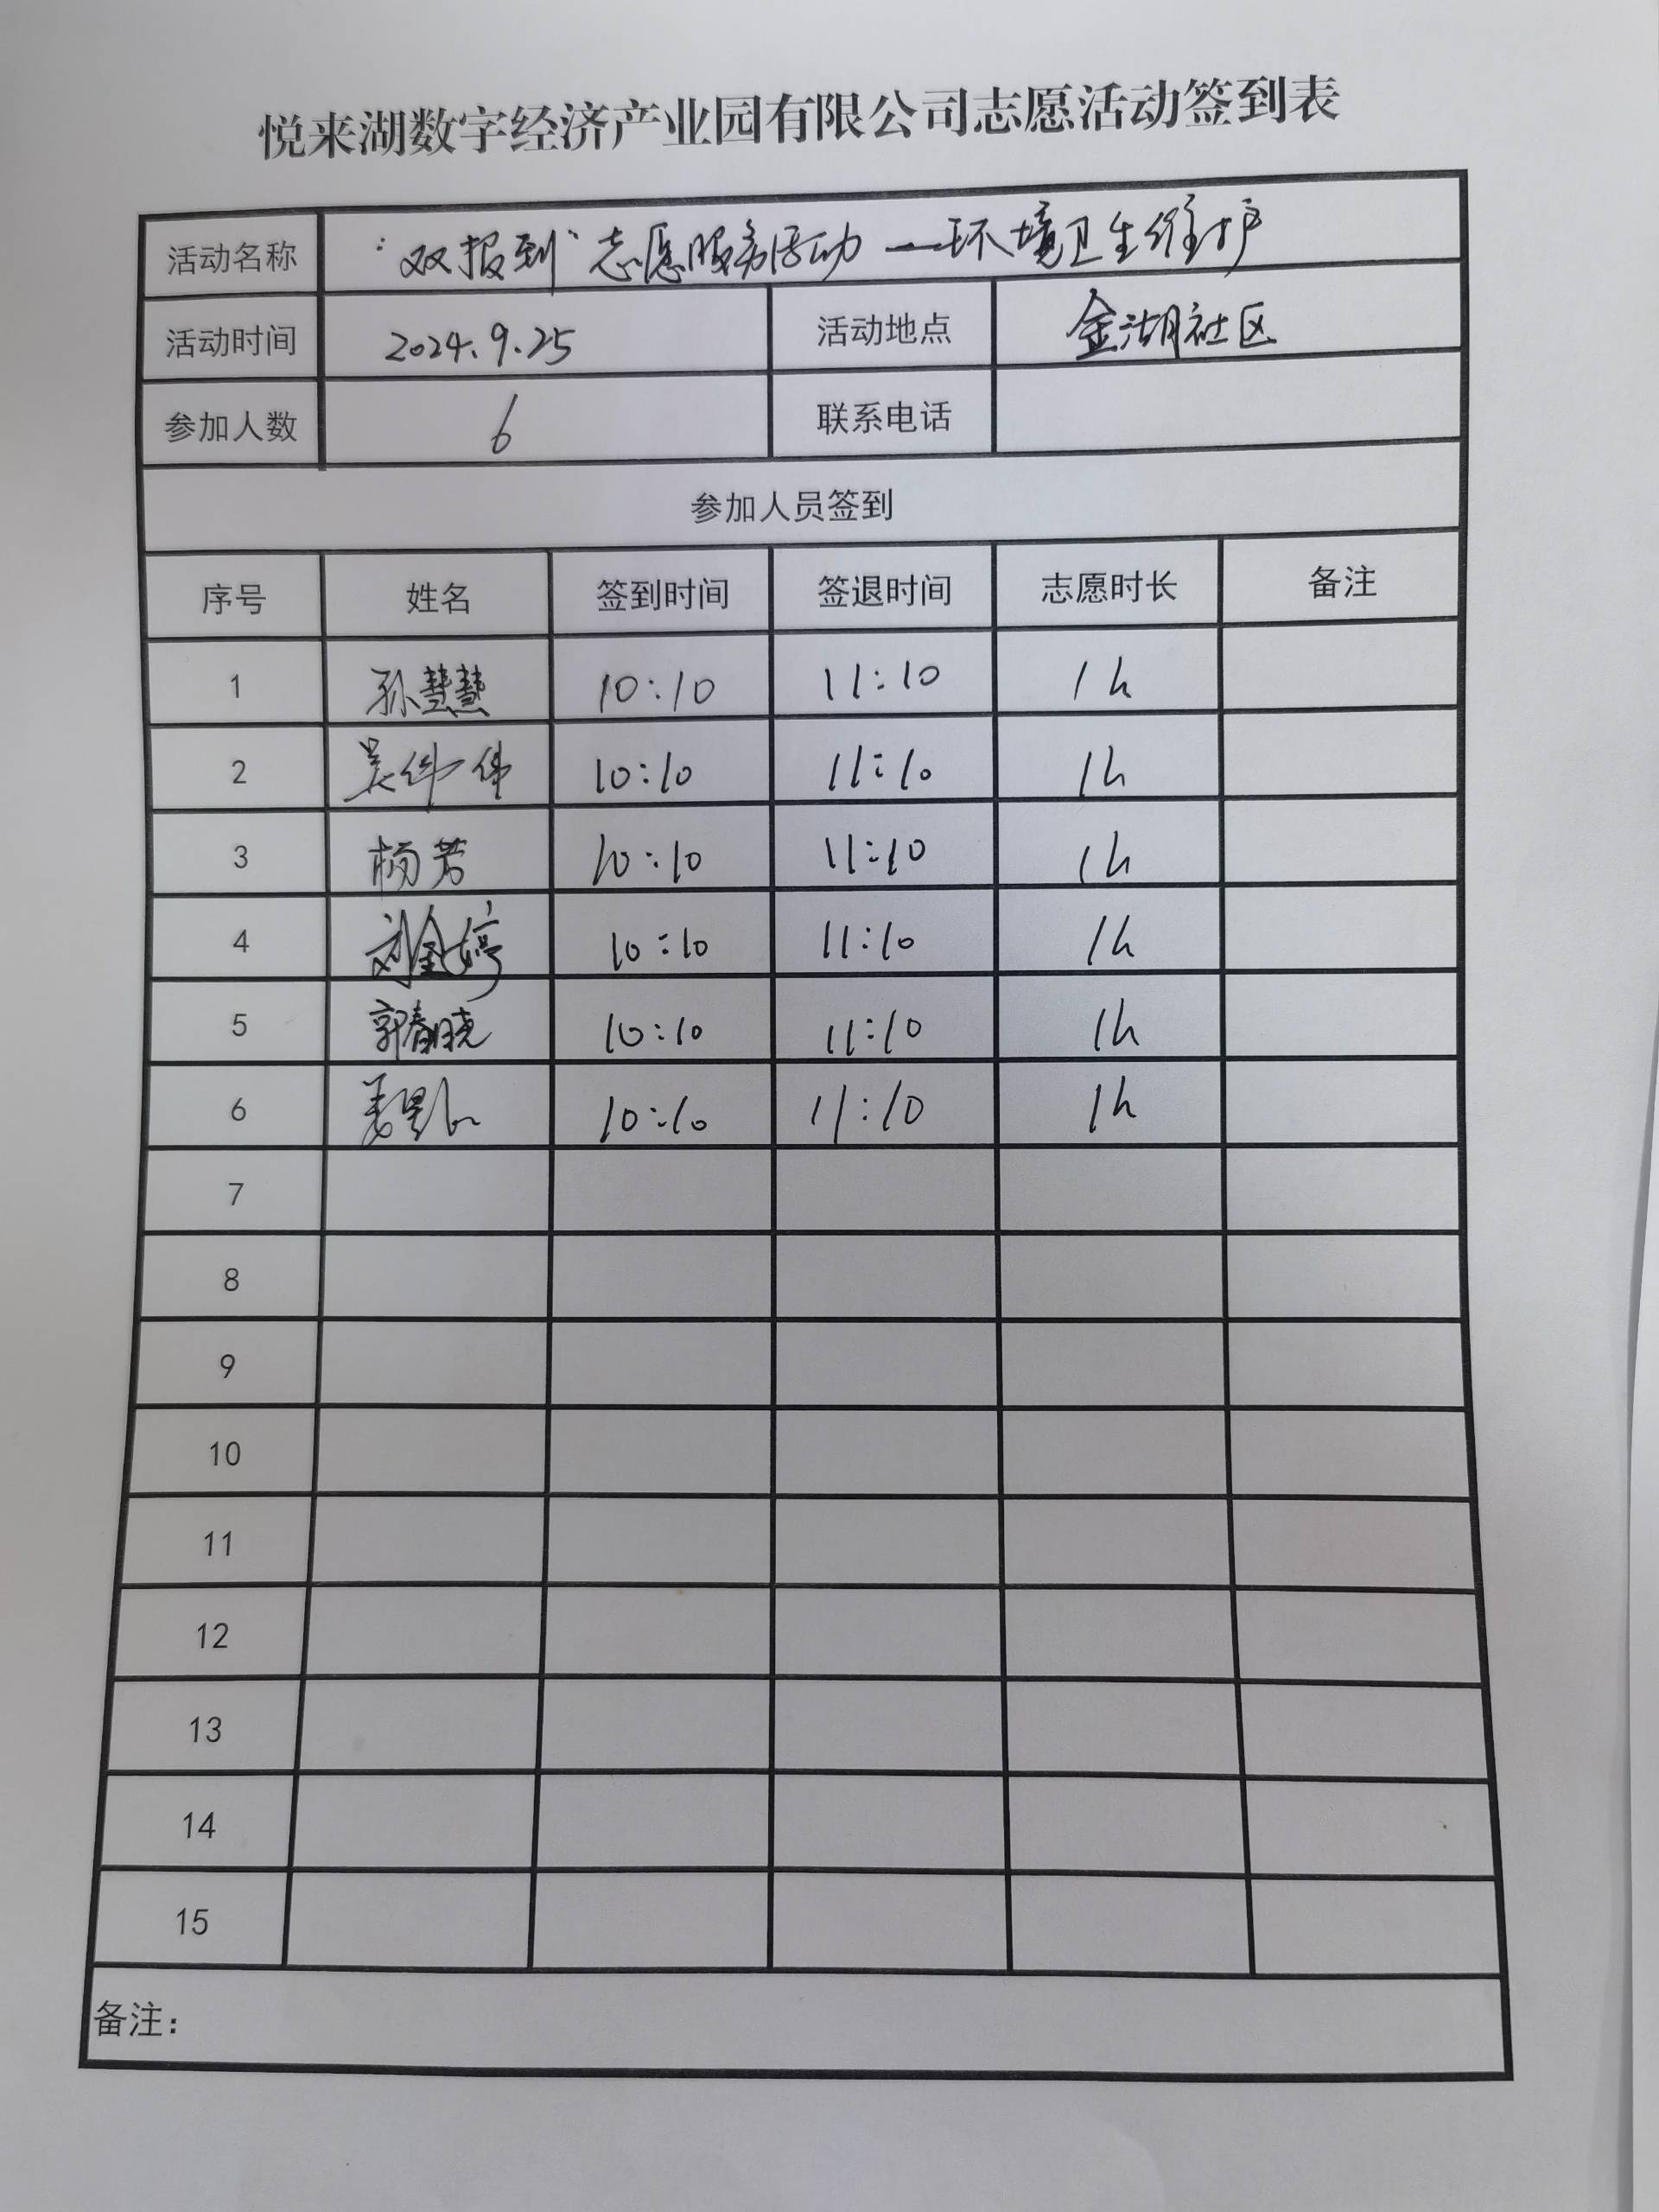 悦来湖数字经济产业园有限公司志愿活动签到表
活动名称 "双报到"志愿服务活动—环境卫生维护
活动时间 2024.9.25 活动地点 金湖社区
参加人数 6 联系电话
参加人员签到
序号 姓名 签到时间 签退时间 志愿时长 备注
1 孙慧慧 10:10 11:10 1h
2 吴伟伟 10:10 11:10 1h
3 杨芳 10:10 11:10 1h
4 刘金婷 10:10 11:10 1h
5 郭春晓 10:10 11:10 1h
6 10:10 11:10 1h
7
8
9
10
11
12
13
14
15
备注：